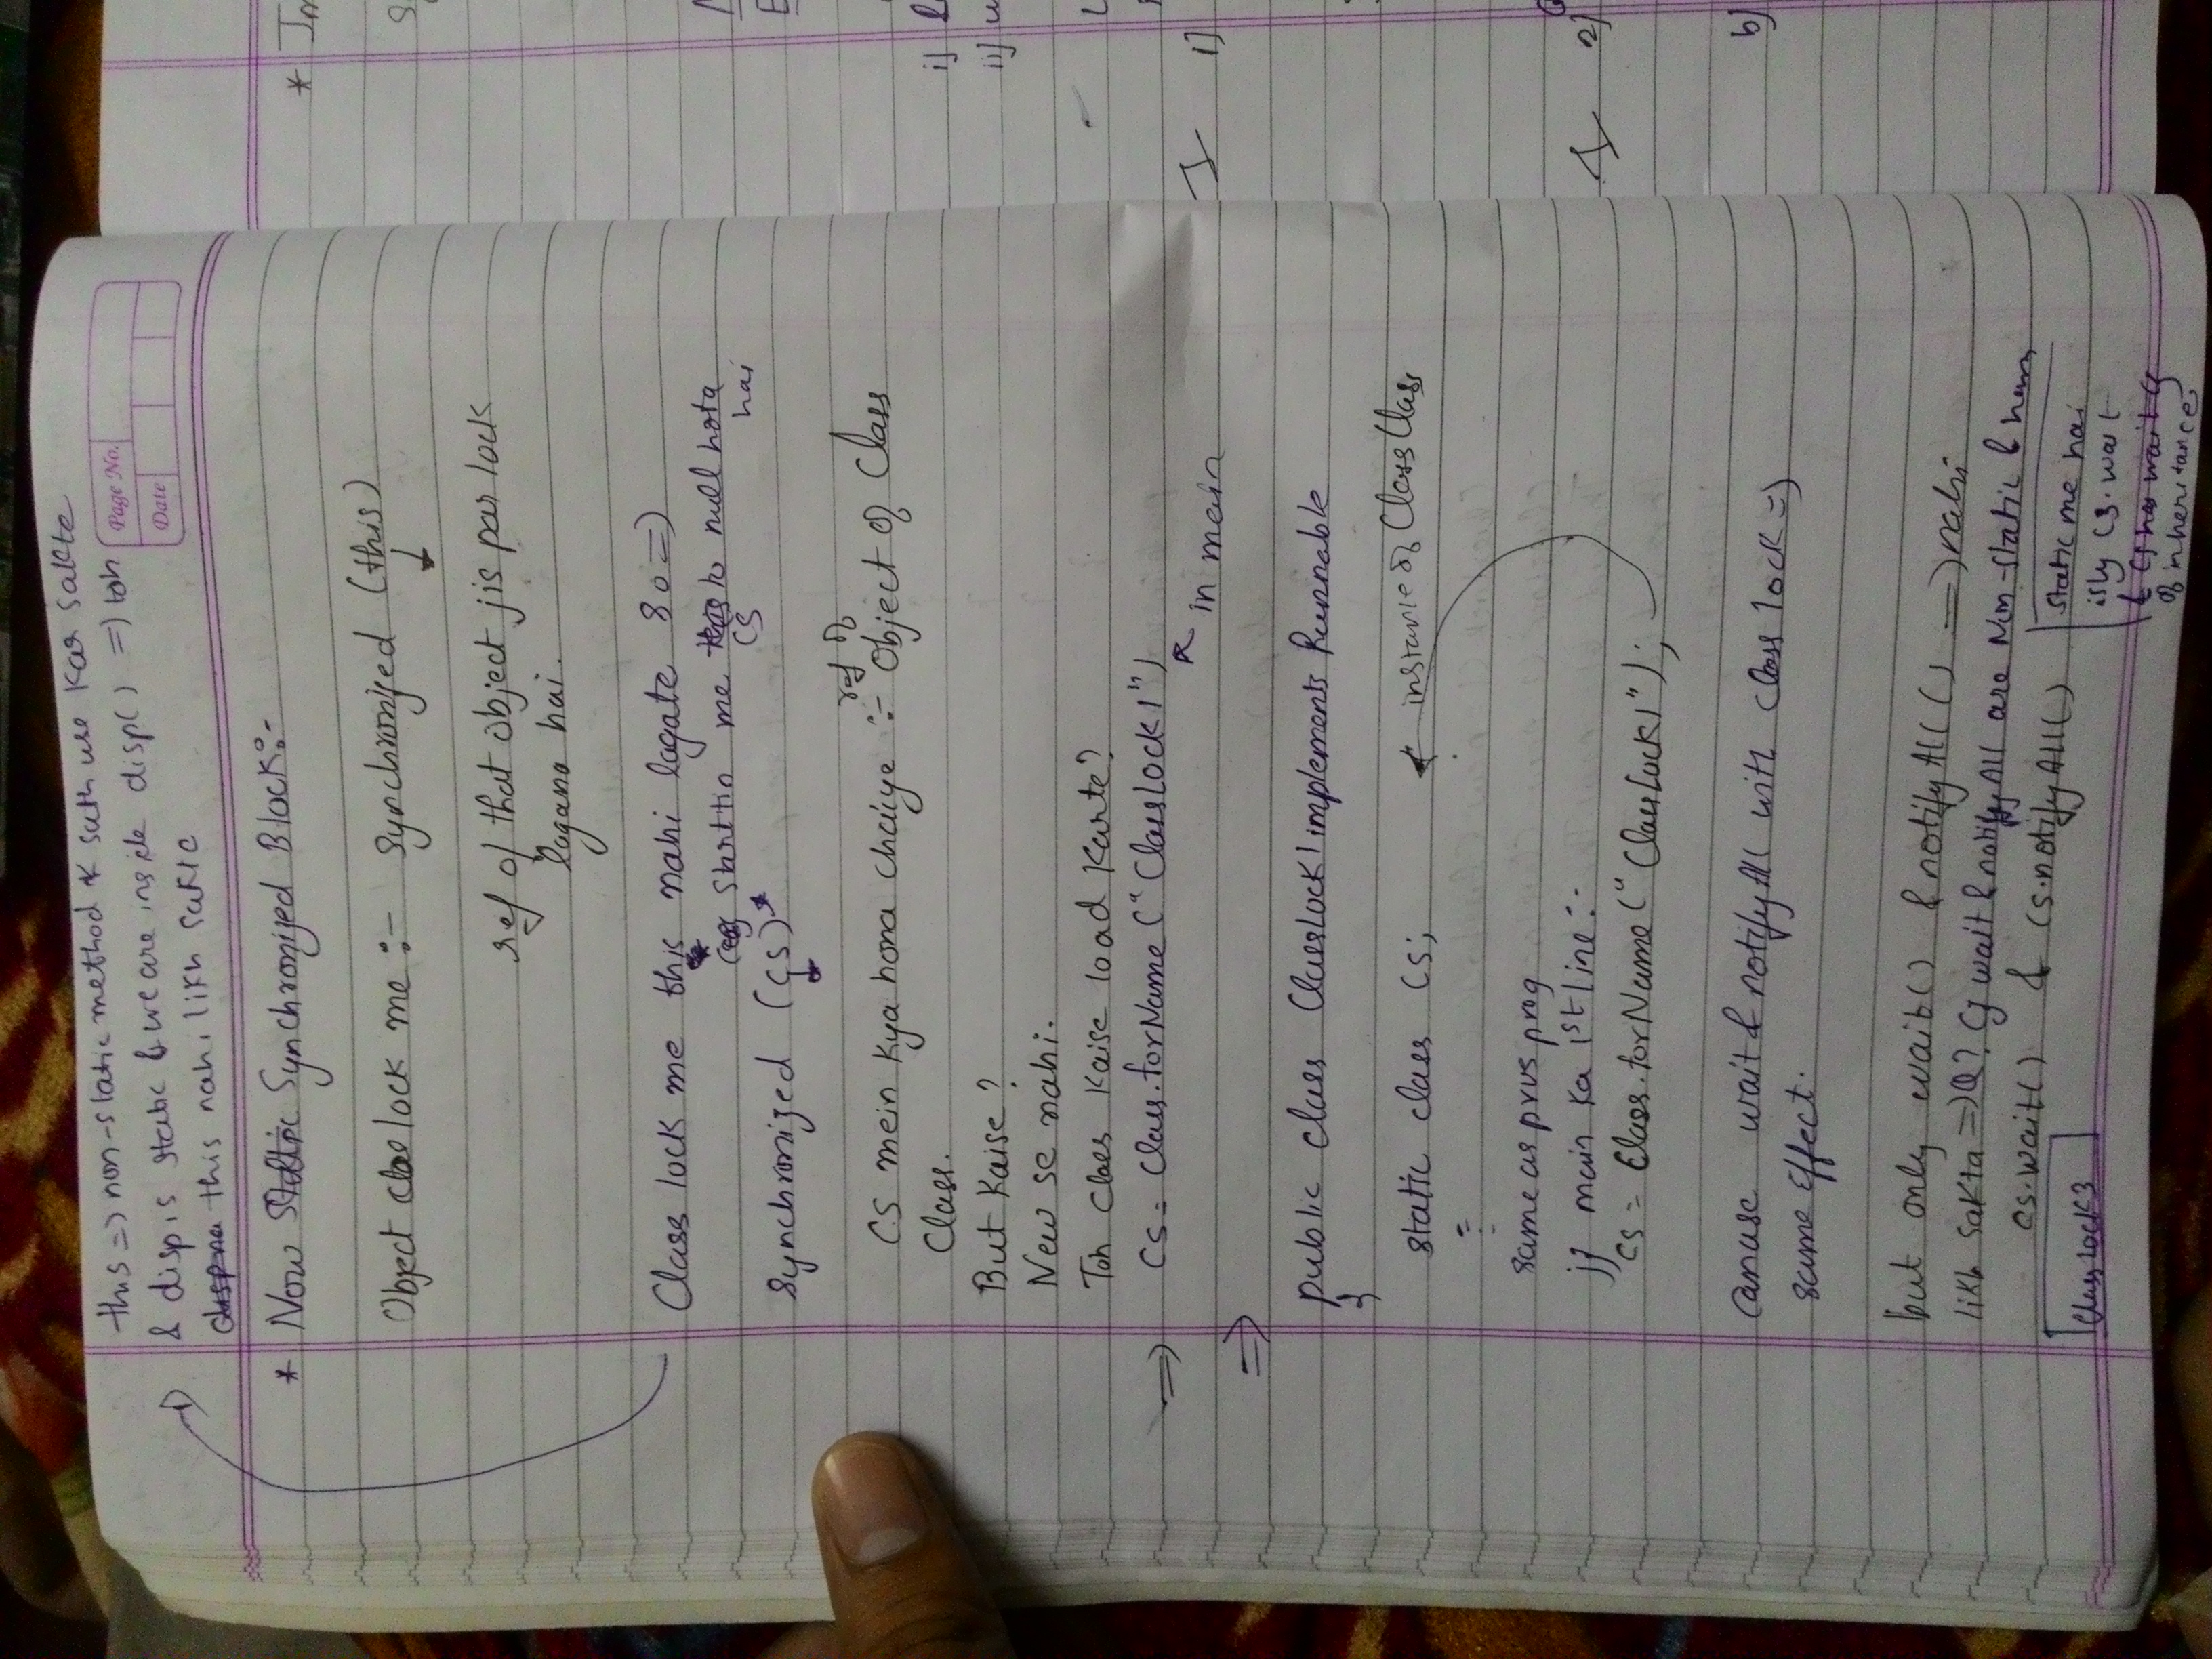 this => non-static method k sath use kar sakte
& disp is static & we are inside disp() => toh
this nahi likh sakte
Page No.
Date
* Now Synchronized Block:-
Object lock me :- synchronized (this)
ref of that object jis par lock
lagana hai.
Class lock me this nahi lagate so =>
starttin me to null hota
cs hai
synchronized (cs)*
ref of
cs mein kya hona chaiye :- object of Class
Class.
But kaise?
New se nahi.
Toh class kaise load karte?
=> cs = Class.forName ("ClassLock1")
in main
=>
public class ClassLock1 implements Runnable
{
static class cs; instance of Class Class
same as prvs prog
main ka 1st line :-
cs = Class.forName ("ClassLock1");
can use wait & notifyAll with class lock =>
same effect.
but only wait() & notifyAll() => nahi
likh sakta => Q? cz wait & notifyAll are Non-static & hum
cs.wait() & cs.notifyAll()
static me hai
isly cs.wait
& cs has wait cz
of inheritance
ClassLock3
* Im
i]
ii]
1]
2]
b]